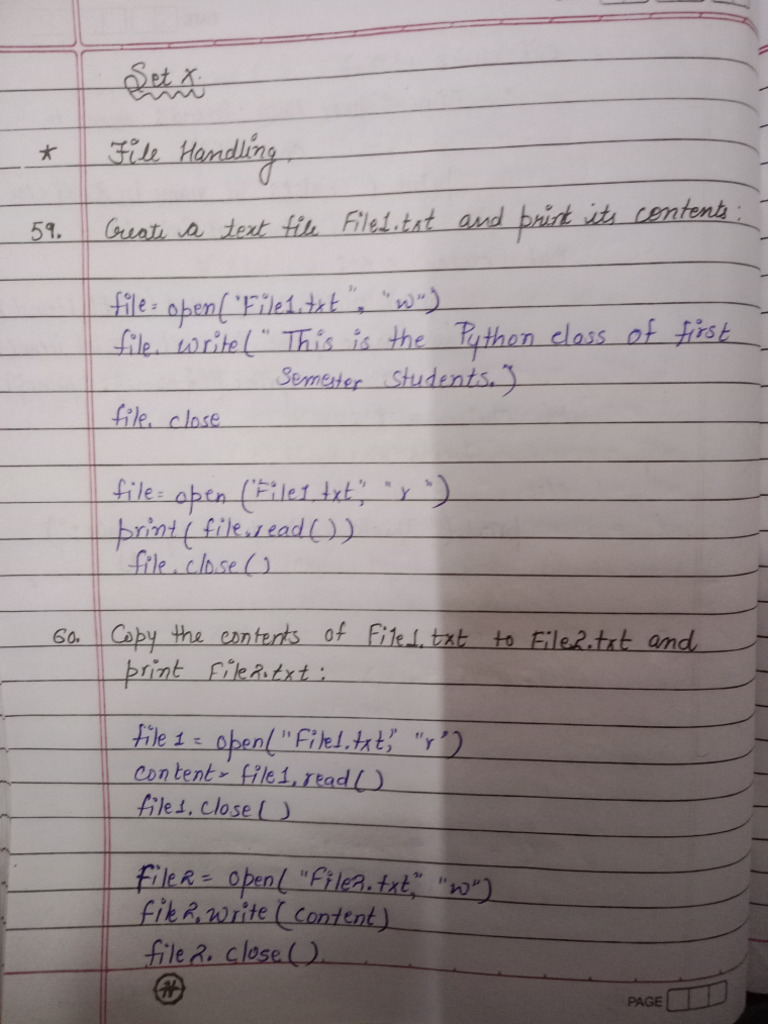 Set X.
* File Handling.
59. Create a text file File1.txt and print its contents:
file = open("File1.txt", "w")
file. write(" This is the Python class of first
Semester Students.")
file. close
file = open ("File1.txt", "r")
print( file.read())
file.close()
60. Copy the contents of File1.txt to File2.txt and
print File2.txt:
file1 = open("File1.txt", "r")
content = file1.read()
file1.close()
File2 = open( "File2.txt", "w")
file2.write(content)
file2. close().
PAGE